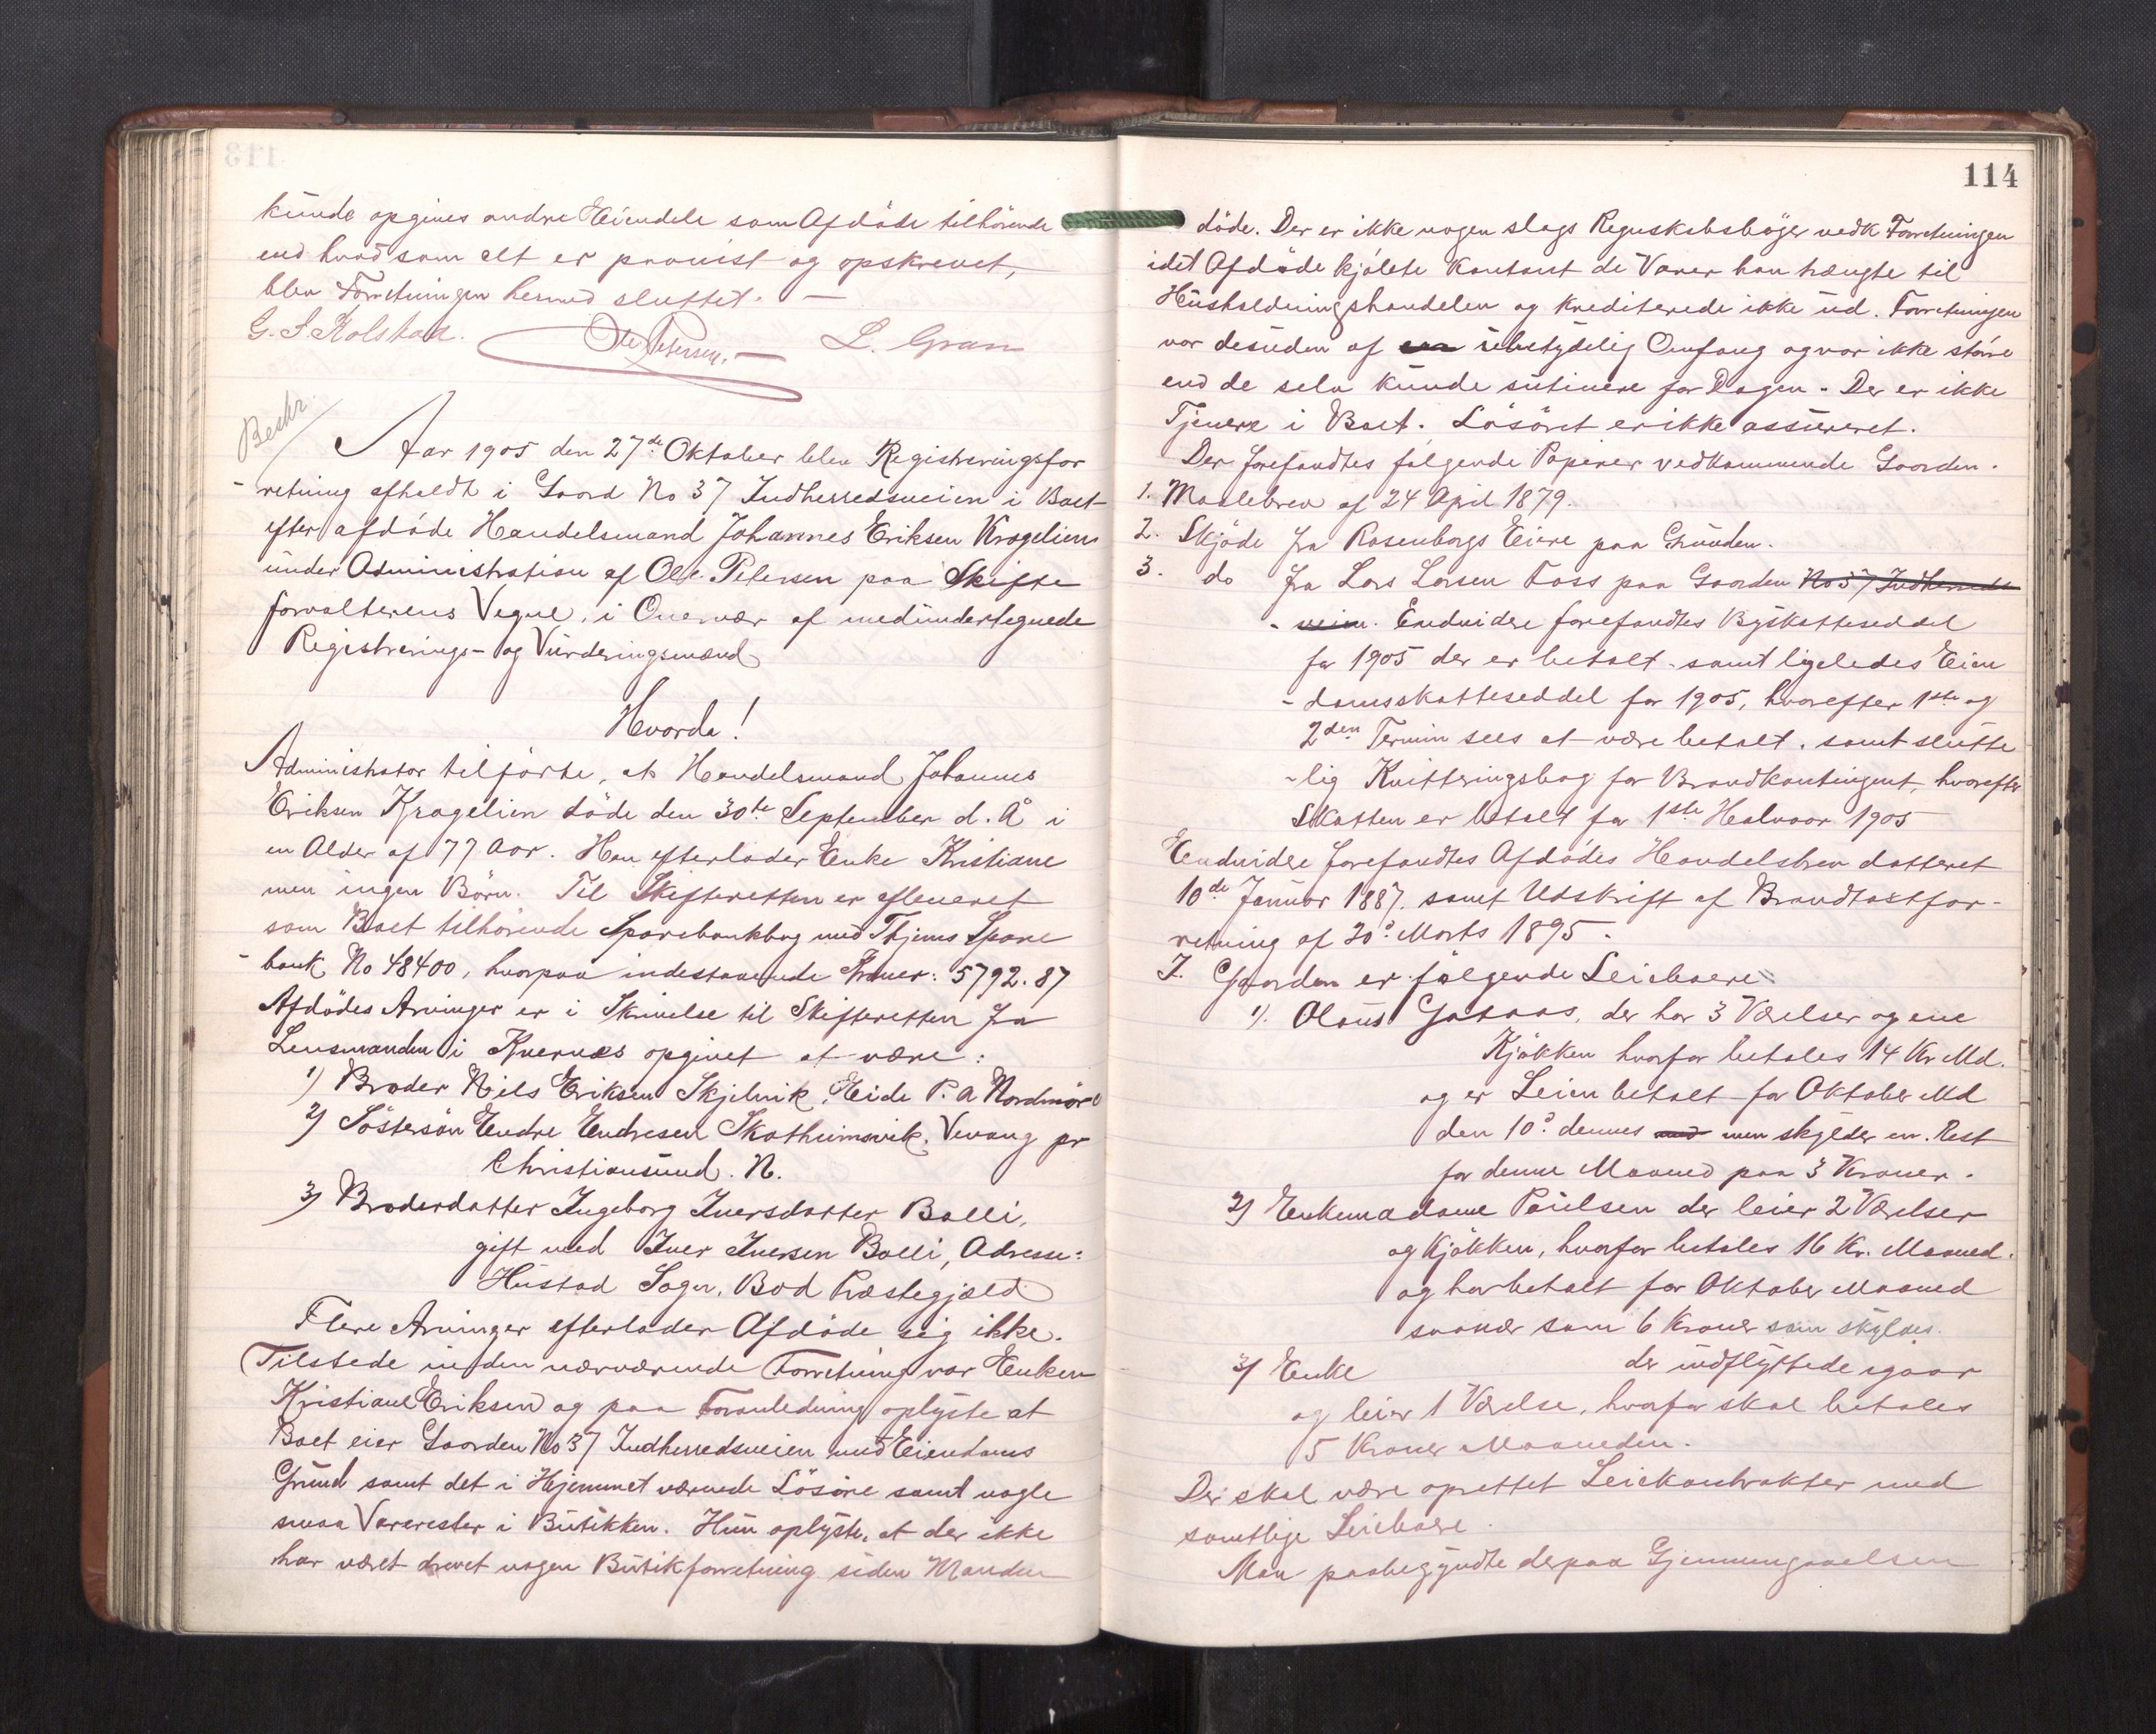 kunde opgives andre Eiendele som Afdöde tilhörende
end hvad som alt er paavist og opskrevet,
blev Forretningen hermed sluttet. —
G. S. Kolstad. Ole Petersen. — L. Gran
Beskr.
Aar 1905 den 27de Oktober blev Registreringsfor
-retning afholdt i Gaard No 37 Indherredsveien i Boet
efter afdöde Handelsmand Johannes Eriksen Kragelien
under Administration af Ole Petersen paa Skifte
forvalterens Vegne, i Overvær af medundertegnede
Registrerings- og Vurderingsmænd
Hvorda!
Administrator tilförte, at Handelsmand Johannes
Eriksen Kragelien döde den 30te September d. Å i
en Alder af 77 Aar. Han efterlader Enke Kristiane
men ingen Börn. Til Skifteretten er afleveret
som Boet tilhörende Sparebankbog med Thjems Spare
-bank No 48400, hvorpaa indestaaende Kroner: 5792.87
Afdödes Arvinger er i Skrivelse til Skifteretten fra
Lensmanden i Kvernes opgivet at være:
1) Broder Nils Eriksen Skjelvik, Eide P. A Nordmöre
2) Söstersön Endre Endresen Skotheimsvik, Vevang pr
Christiansund. N.
3) Broderdatter Ingeborg Iversdatter Bolli,
gift med Iver Iversen Bolli, Adresse:
Hustad Sogn, Bod Præstegjæld
Flere Arvinger efterlader Afdöde sig ikke.
Tilstede under nærværende Forretning var Enken
Kristiane Eriksen og paa Foranledning oplyste at
Boet eier Gaarden No 37 Indherredsveien med Eiendoms
Grund samt det i Hjemmet værende Lösöre samt nogle
smaa Varerester i Butikken. Hun oplyste, at der ikke
har været drevet nogen Butikforretning siden Manden
114
döde. Der er ikke nogen slags Regnskabsböger vedk Forretningen
idet Afdöde kjöbte kontant de Varer han trængte til
Husholdningshandelen og krediterede ikke ud. Forretningen
var desuden af en ubetydelig Omfang og var ikke större
end de selv kunde sutinere for Dagen. Der er ikke
Tjenere i Boet. Lösöret er ikke assureret.
Der forefandtes fölgende Papirer vedkommende Gaarden.
1. Maalebrev af 24 April 1879.
2. Skjöde fra Rosenborgs Eiere paa Grunden.
3. do fra Lars Larsen Foss paa Gaarden No 37 Indherreds
-veien. Endvidere forefandtes Byskatteseddel
for 1905 der er betalt. samt ligeledes Eien
-domsskatteseddel for 1905, hvorefter 1ste og
2den Termin sees at være betalt. samt slutte
-lig Kvitteringsbog for Brandkontingent, hvorefter
Skatten er betalt for 1ste Halvaar 1905
Endvidere forefandtes Afdödes Handelsbrev datteret
10de Januar 1887. samt Udskrift af Brandtaxtfor-
retning af 20d Marts 1895.
I. Gaarden er fölgende Leieboere:
1). Olaus Gataas, der har 3 Værelser og ene
Kjökken hvorfor betales 14 Kr Md.
og er Leien betalt for Oktober Md
den 10d dennes med men skylder en Rest
for denne Maaned paa 3 Kroner.
2) Enkemadame Paulsen der leier 2 Værelser
og Kjökken, hvorfor betales 16 Kr. Maaned.
og har betalt for Oktober Maaned
saanær som 6 Kroner som skyldes.
3) Enke der indflyttede igaar
og leier 1 Værelse, hvorfor skal betales
5 Kroner Maaneden.
Der skal være oprettet Leiekontrakter med
samtlige Leieboere.
Man paabegyndte derpaa Gjennemgaaelsen